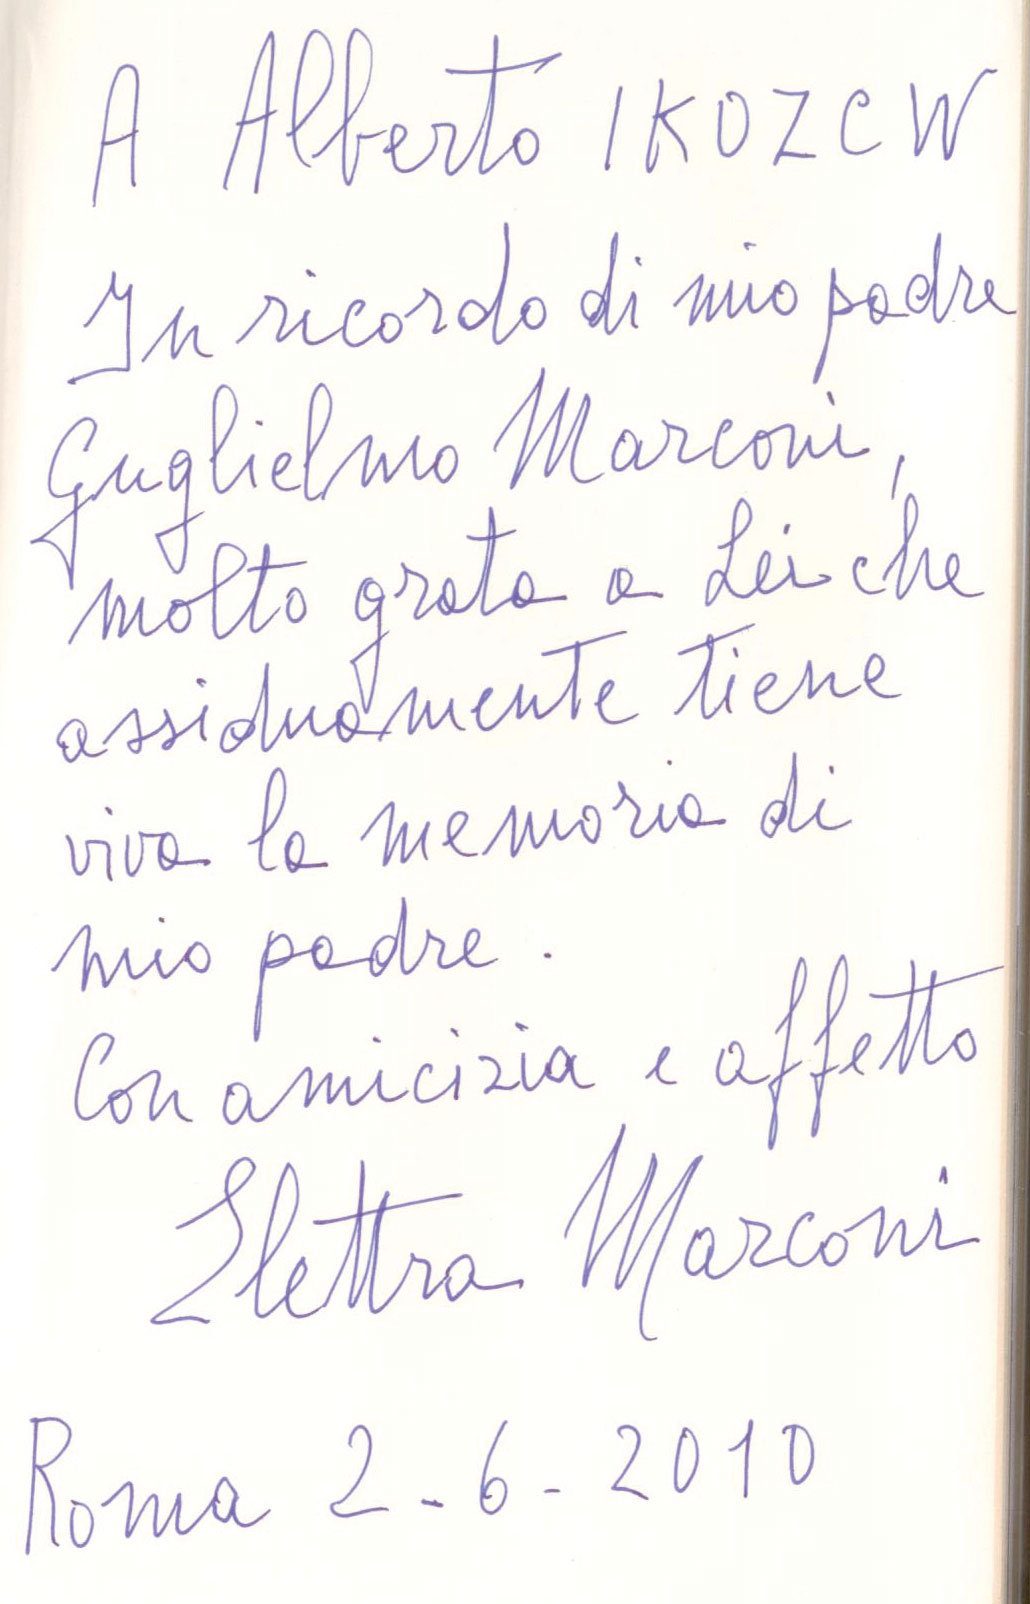 A Alberto IK0ZCW
In ricordo di mio padre
Guglielmo Marconi,
molto grata a Lei che
assiduamente tiene
viva la memoria di
mio padre.
Con amicizia e affetto
Elettra Marconi
Roma 2-6-2010